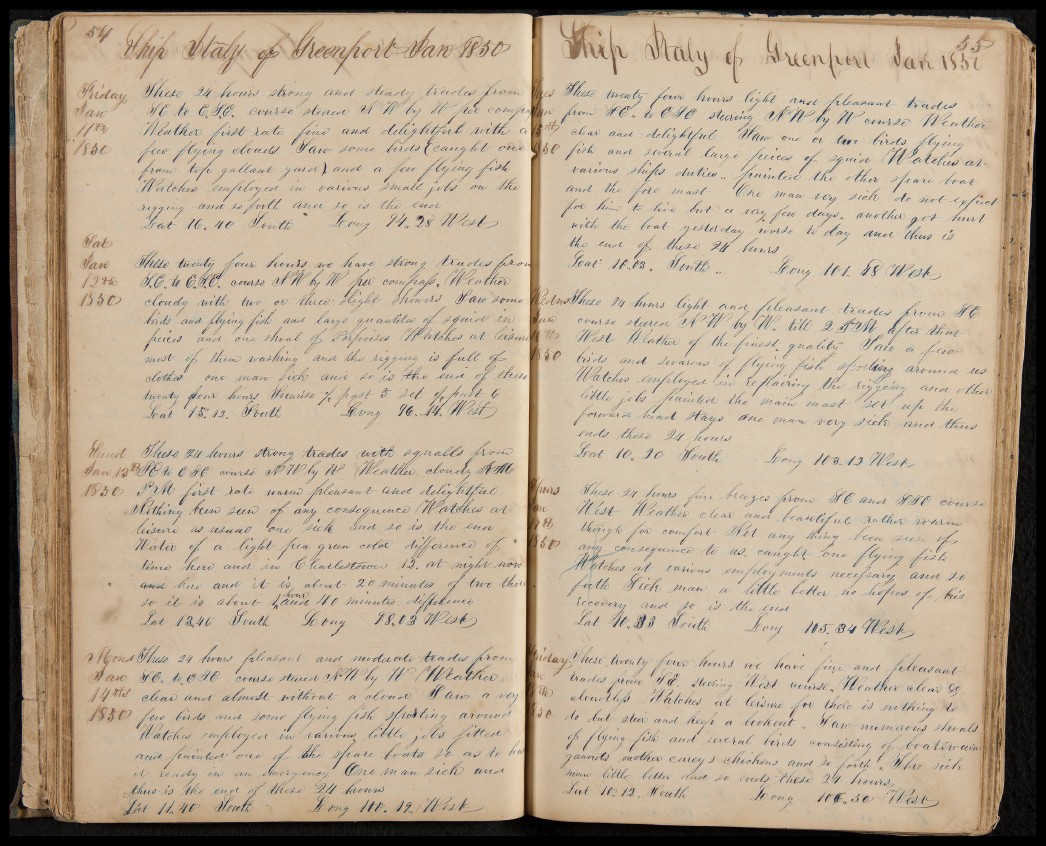 54
Ship Italy of Greenport Jan 1850
Friday These 24 hours strong and steady trades from
Jan SE to E.S.E. course steered N W by W per compass
11th Weather first rate fine and delightful with a
1850 few flying clouds Saw some birds (caught one
from top gallant yard) and a few flying fish
Watches employed in various small jobs on the
rigging and so forth and so is the end
Lat 16.40 South Long 94.28 West
Sat
Jan These twenty four hours we have strong trades from
12th S.E. to E.S.E. course N W by W per compass. Weather
1850 cloudy with two or three slight showers Saw some
birds and flying fish and large quantities of squid in
pieces and one shoal of Porpoises Watches at leisure
most of them washing and the rigging is full of
clothes one man sick and so is the end of these
twenty four hours Sunrise 1/2 past 5 set 1/2 past 6
Lat 15.12. South Long 96.14. West
Sund These 24 hours strong trades with squalls from
Jan 13th SE to E S E course N W by W Weather cloudy A M
1850 P M first rate warm pleasant and delightful
Nothing been seen of any consequence Watches at
leisure as usual one sick and so is the end
Water of a light pea green color difference of
time here and in Charlestown 12. at night now
and here and it is about 20 minutes of two there
so it is about 1 hour and 40 minutes difference
Lat 13.46 South Long 98.03 West
Mond These 24 hours pleasant and moderate trades from
Jan S E. to E S E course steered N W by W Weather
14th clear and almost without a cloud Saw a very
1850 few birds and some flying fish sporting around
Watches employed in various little jobs fitted
and painted one of the spare boats so as to have
it ready in an emergency One man sick and
thus is the end of these 24 hours
Lat 11.40 South Long 100.19. West
55
Ship Italy of Greenport Jan 1850
These twenty four hours light and pleasant trades
Jan from S E. to E S E steering N W by W course Weather
15th clear and delightful Saw one or two birds flying
fish and several large pieces of squid Watches at
various ships duties. painted the other spare boat
and the fore mast One man very sick do not expect
for him to live but a very few days. another got hurt
with the boat yesterday worse to day and thus is
the end of these 24 hours
Lat 10.03. South Long 101.58 West
Wedns These 24 hours light and pleasant trades from S E
Jan course steered N W by W. till 2 P M after that
16th West Weather of the finest quality Saw a few
1850 birds and swarms of flying fish sporting around us
Watches employed in repairing the rigging and other
little jobs painted the main mast set up the
forward head stays one man very sick and thus
ends these 24 hours
Lat 10.20 South Long 103.12 West
Thurs These 24 hours fine breezes from S E and S S E course
Jan West Weather clear and beautiful rather warm
17th though for comfort Not any thing been seen of
1850 any consequence to us. caught one flying fish
Watches at various employments necessary and so
forth Sick man a little better no hopes of his
recovery and so is the end
Lat 10.33 South Long 105.34 West
Friday These twenty four hours we have fine and pleasant
Jan trades from S E. steering West course. Weather clear &
cloudless Watches at leisure for there is nothing to
do but steer and keep a lookout. Saw numerous shoals
of flying fish and several birds consisting of boatswain
gannets mother careys chickens and so forth. The sick
man little better and so ends these 24 hours
Lat 10.12. South Long 106.50 West